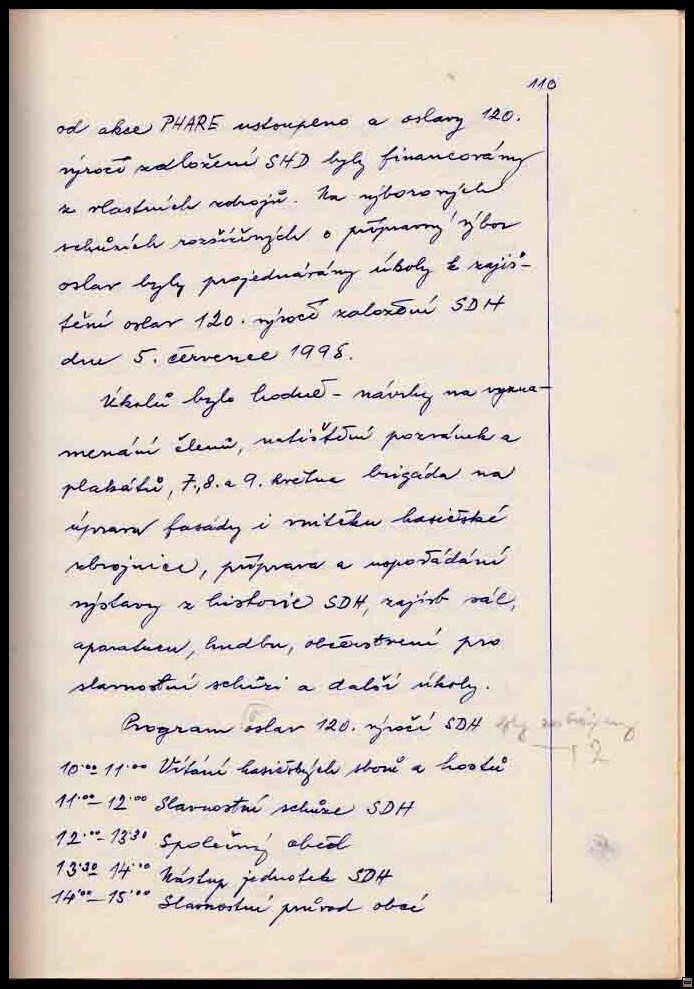 110
od akce PHARE ustoupeno a oslavy 120.
výročí založení SHD byly financovány
z vlastních zdrojů. Na výborových
schůzích rozšířených o přípravný výbor
oslav byly projednávány úkoly k zajiš-
tění oslav 120. výročí založení SDH
dne 5. července 1998.
Úkolů bylo hodně - návrhy na vyzna-
menání členů, natištění pozvánek a
plakátů, 7., 8. a 9. května brigáda na
úpravu fasády i vnitřku hasičské
zbrojnice, příprava a uspořádání
výstavy z historie SDH, zajistit sál,
aparaturu, hudbu, občerstvení pro
slavnostní schůzi a další úkoly.
Program oslav 120. výročí SDH byly
10·00 11·00 Vítání hasičských sborů a hostů
11·00 - 12·00 Slavnostní schůze SDH
12·00 - 13·30 Společný oběd
13·30 14·00 Nástup jednotek SDH
14·00 - 15·00 Slavnostní průvod obcí